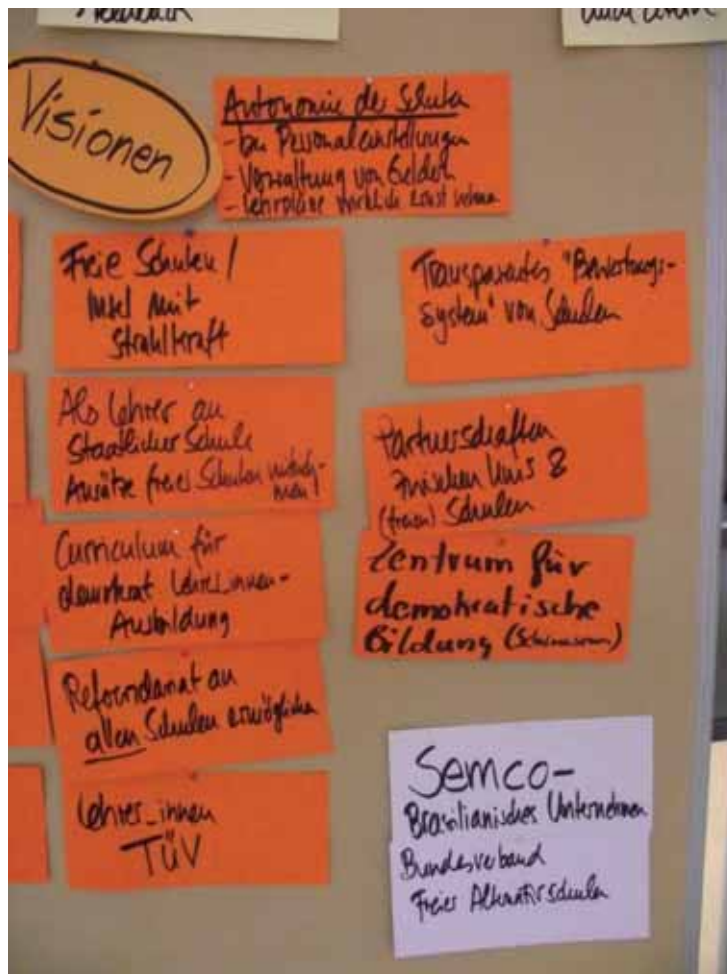 Feedback
Visionen
Autonomie der Schulen
- bei Personaleinstellungen
- Verwaltung von Geldern
- Lehrpläne wirklich ernst nehmen
Freie Schulen /
Insel mit
Strahlkraft
Transparentes "Bewertungs-
system" von Schulen
Als Lehrer an
Staatlicher Schule
Ansätze freier Schulen
Partnerschaften
zwischen Unis &
(freien) Schulen
Curriculum für
demokrat Lehrer_innen-
Ausbildung
Zentrum für
demokratische
Bildung
Reformdanat an
allen Schulen ermöglichen
Lehrer_innen
TÜV
Semco-
Brasilianisches Unternehmen
Bundesverband
Freier Alternativschulen